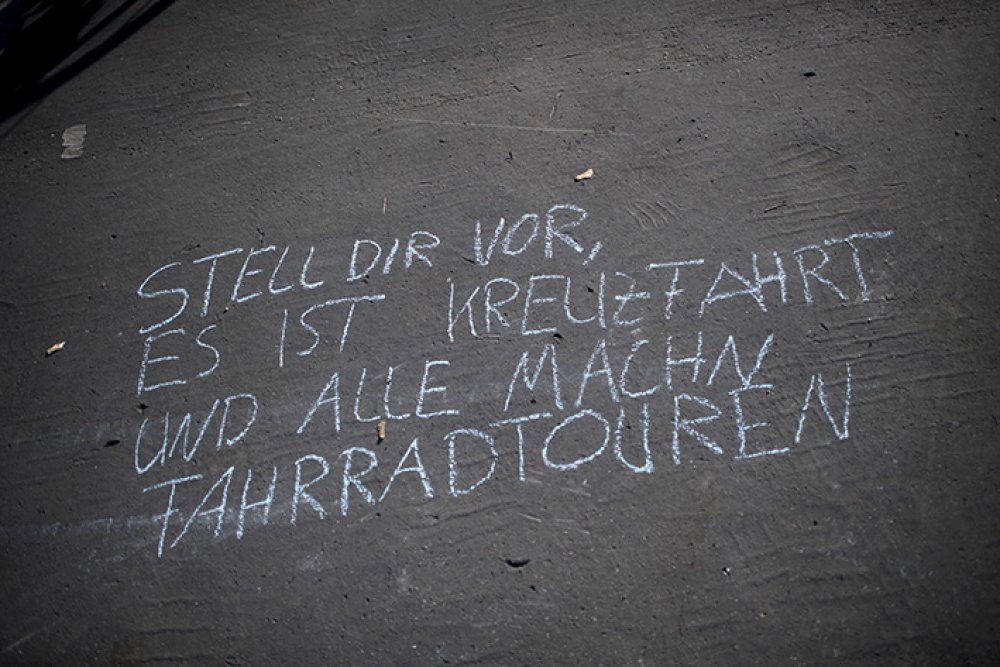 STELL DIR VOR,
ES IST KREUZFAHRT
UND ALLE MACHN
FAHRRADTOUREN